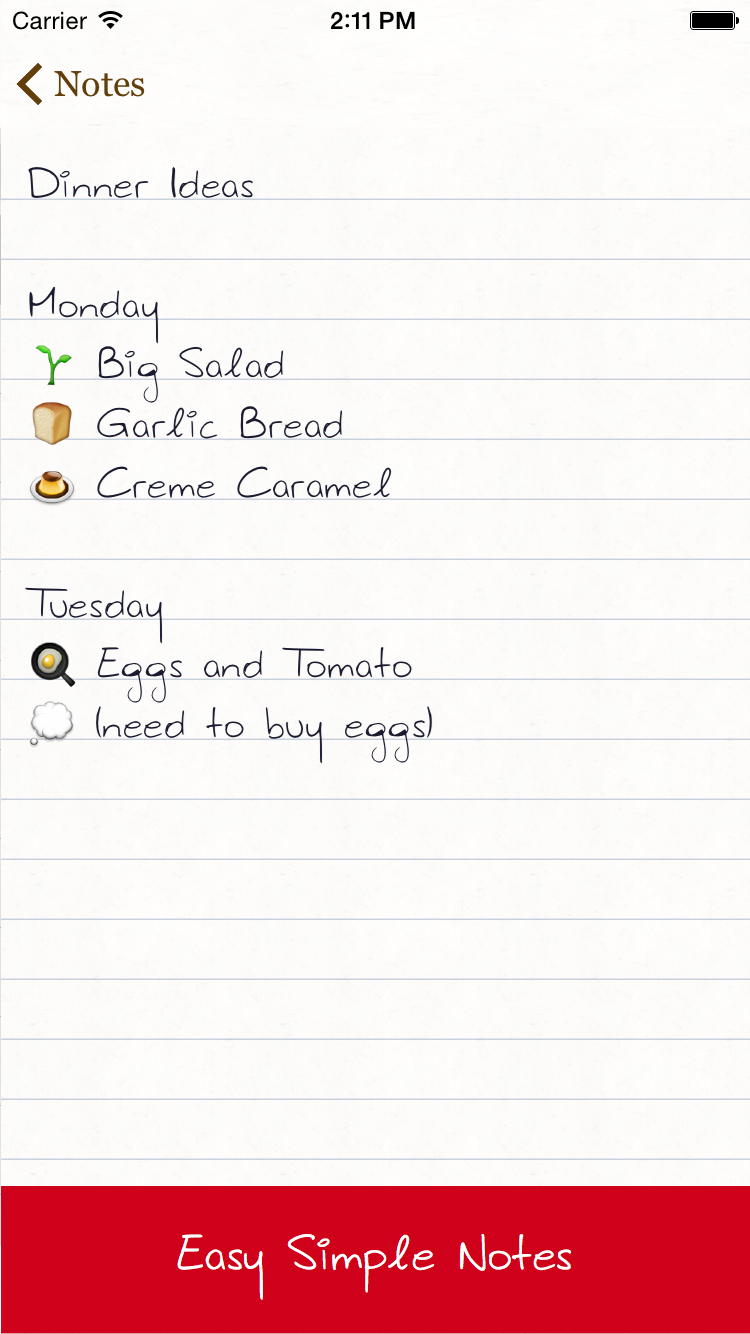 Carrier 2:11 PM
Notes
Dinner Ideas
Monday
🌱 Big Salad
🍞 Garlic Bread
🍮 Creme Caramel
Tuesday
🍳 Eggs and Tomato
💭 (need to buy eggs)
Easy Simple Notes